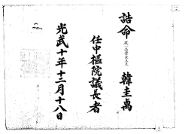 詔命 韓圭卨
任中樞院議長者
光武十年十二月十八日